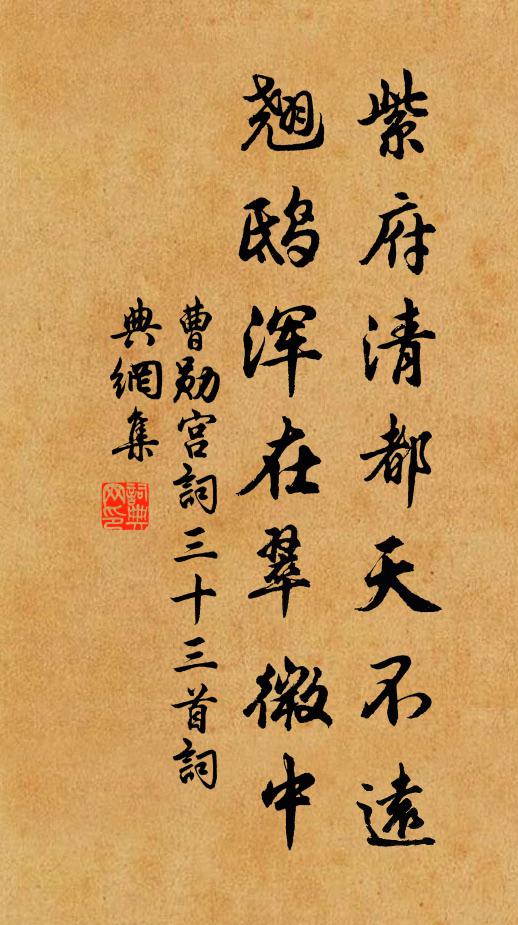 紫府清都天不遠
翘鸱浑在翠微中
曹勋宫詞三十三首詞
典網集
詞典